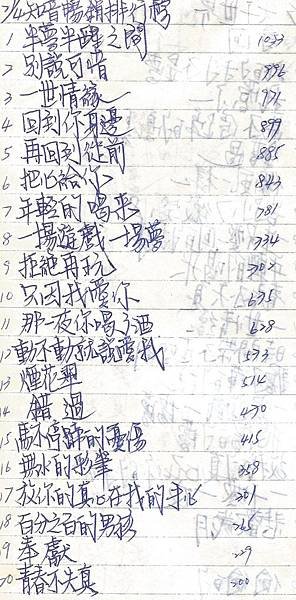 7/4知音暢銷排行榜
1 半夢半醒之間 1033
2 別說可惜 996
3 一世情緣 971
4 回到你身邊 899
5 再回到從前 885
6 把心給你 843
7 年輕的喝采 781
8 一場遊戲一場夢 734
9 拒絕再玩 702
10 只因我愛你 675
11 那一夜你喝了酒 628
12 動不動就說愛我 573
13 煙花 514
14 錯過 470
15 馬不停蹄的憂傷 415
16 無水的彩筆 358
17 放你的真心在我的手心 301
18 百分之百的男孩 265
19 奉獻 229
20 青春不失真 200